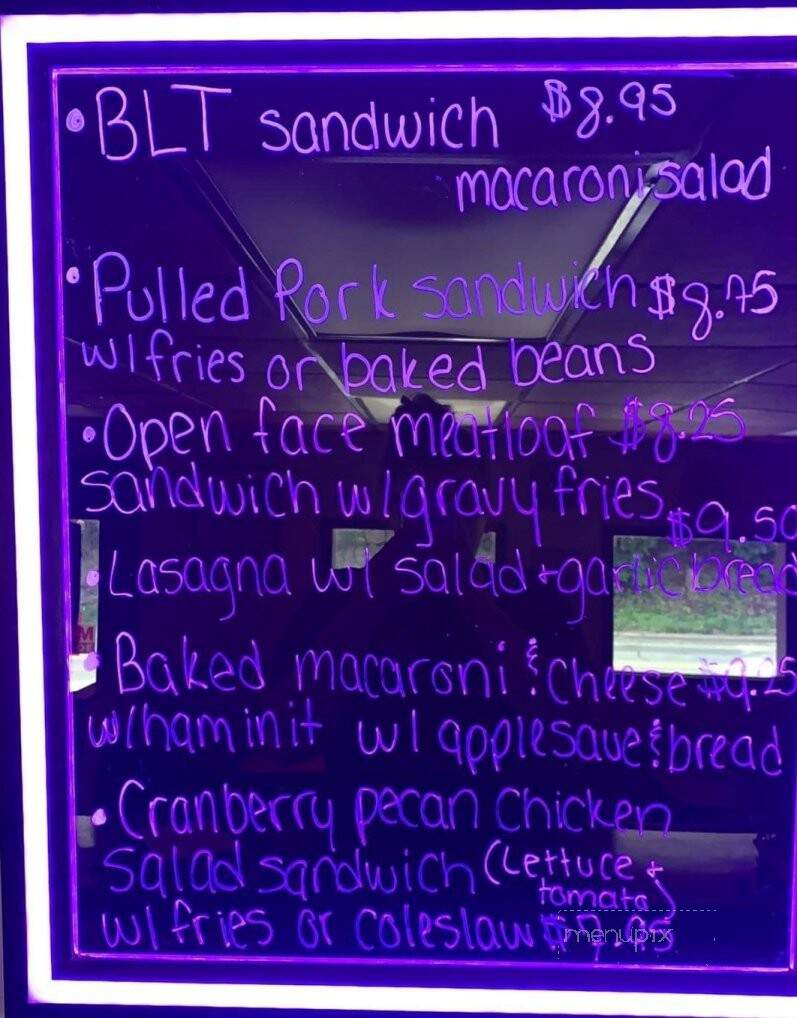 • BLT sandwich $8.95
macaroni salad
• Pulled Pork sandwich $8.75
w/fries or baked beans
• Open face meatloaf $8.25
sandwich w/gravy fries
$9.50
• Lasagna w/ salad + garlic bread
• Baked macaroni & cheese $9.25
w/ham in it w/ applesaue & bread
• Cranberry pecan chicken
salad sandwich (Lettuce +
tomato)
w/fries or coleslaw
menupix